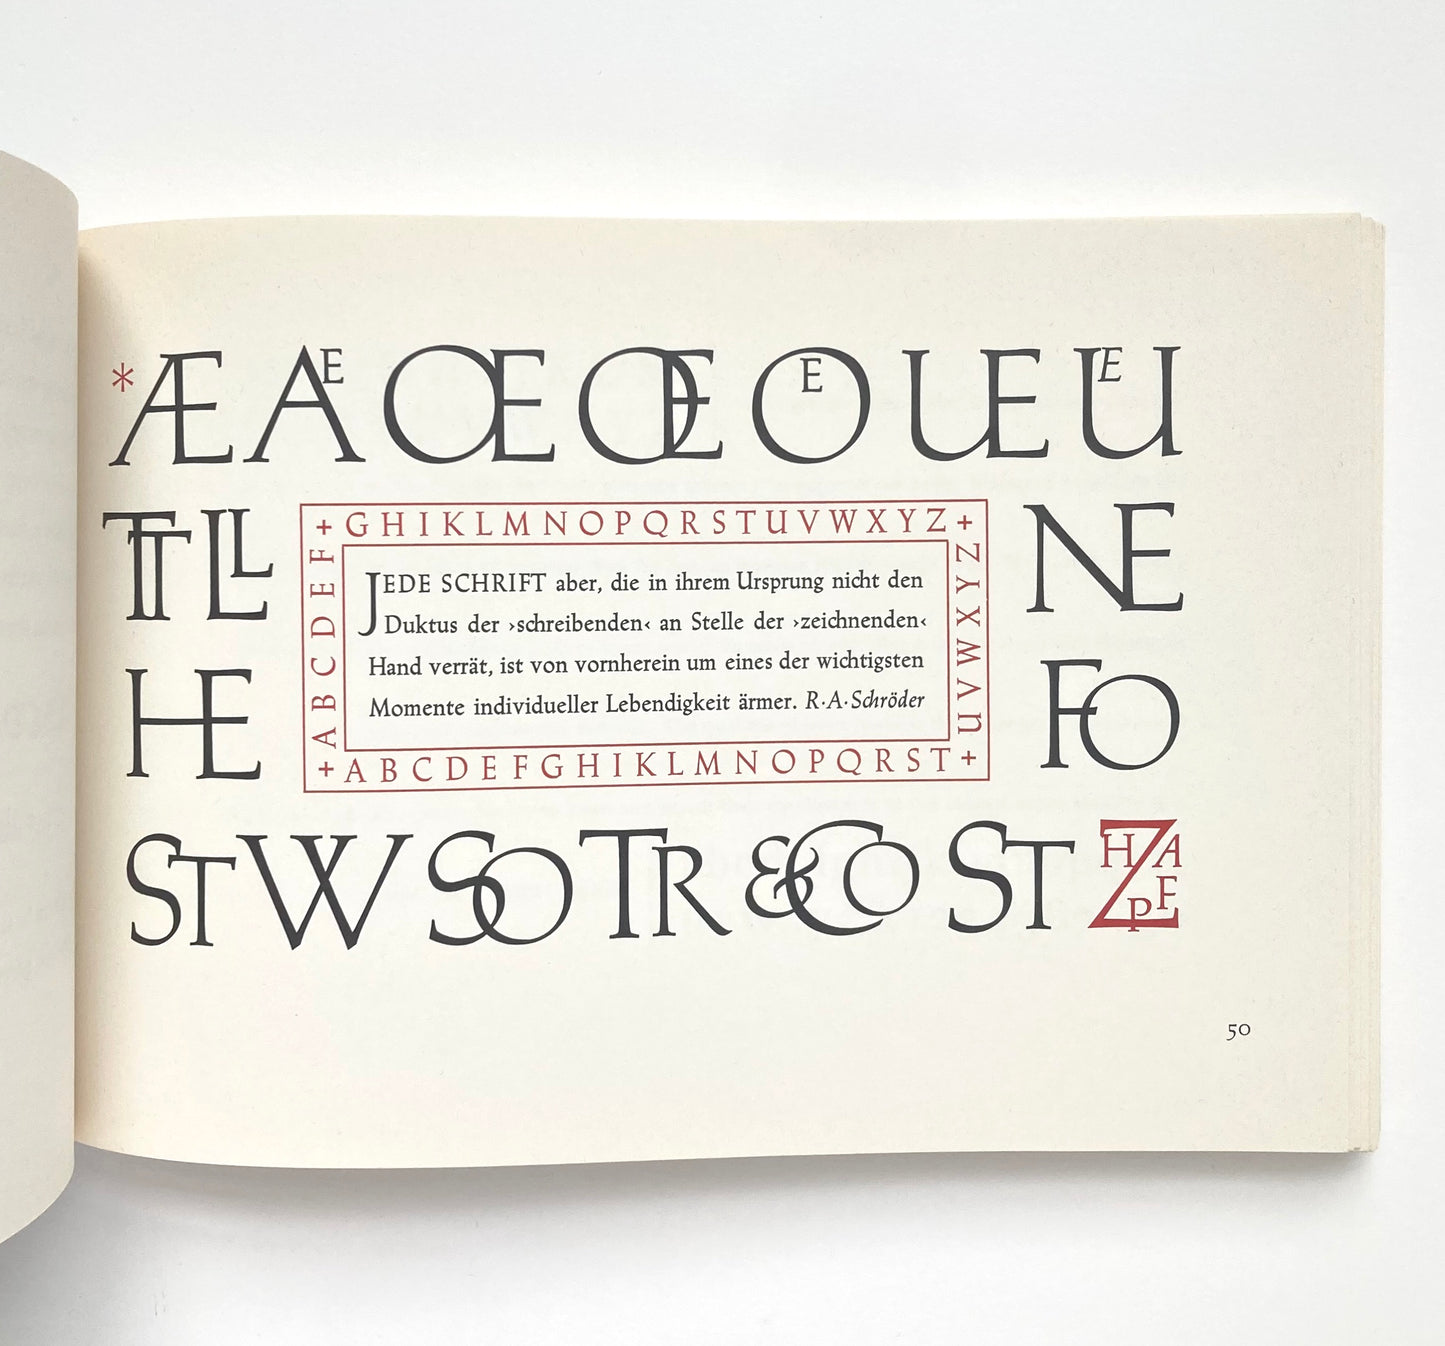 * Æ AE Œ OE OE UE UE
TT LL
NE
HE
FO
+ GHIKLMNOPQRSTUVWXYZ +
ABCDEF
ZYXWVU
JEDE SCHRIFT aber, die in ihrem Ursprung nicht den
Duktus der ›schreibenden‹ an Stelle der ›zeichnenden‹
Hand verrät, ist von vornherein um eines der wichtigsten
Momente individueller Lebendigkeit ärmer. R·A·Schröder
+ ABCDEFGHIKLMNOPQRST +
ST W SO TR &CO ST ZHAPF
50